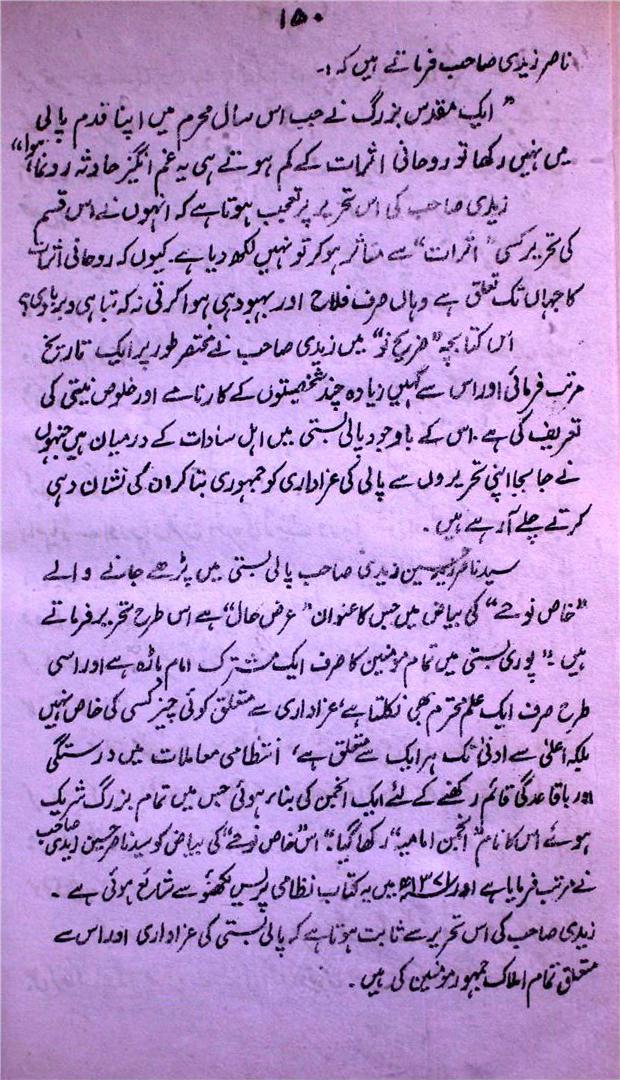 ۱۵۰
ناصر زیدی صاحب فرماتے ہیں کہ :۔
"ایک مقدس بزرگ نے جب اس سال محرم میں اپنا قدم پالی
میں نہیں رکھا تو روحانی اثرات کے کم ہوتے ہی یہ غم انگیز حادثہ رونما ہوا"
زیدی صاحب کی اس تحریر پر تعجب ہوتا ہے کہ انہوں نے اس قسم
کی تحریر کسی "اثرات" سے متاثر ہو کر تو نہیں لکھ دیا ہے۔ کیوں کہ روحانی اثرات
کا جہاں تک تعلق ہے وہاں صرف فلاح اور بہبود ہی ہوا کرتی نہ کہ تباہی و بربادی؟
اس کتابچہ "ضریح نو" میں زیدی صاحب نے مختصر طور پر ایک تاریخ
مرتب فرمائی اور اس سے کہیں زیادہ چند شخصیتوں کے کارنامے اور خلوص نیتی کی
تعریف کی ہے۔ اس کے باوجود پالی بستی میں اہل سادات کے درمیان ہیں جنہوں
نے جا بجا اپنی تحریروں سے پالی کی عزاداری کو جمہوری بتا کر ان کی نشان دہی
کرتے چلے آرہے ہیں۔
سید ناصر حسین زیدی صاحب پالی بستی میں پڑھے جانے والے
"خاص نوحے" کی بیاض میں جس کا عنوان "عرض حال" ہے اس طرح تحریر فرماتے
ہیں :۔ "پوری بستی میں تمام مومنین کا صرف ایک مشترک امام باڑہ ہے اور اسی
طرح صرف ایک علم محترم بھی نکلتا ہے، عزاداری سے متعلق کوئی چیز کسی کی خاص نہیں
بلکہ اعلیٰ سے ادنیٰ تک ہر ایک سے متعلق ہے، انتظامی معاملات میں درستگی
اور باقاعدگی قائم رکھنے کے لئے ایک انجمن کی بناء ہوئی جس میں تمام بزرگ شریک
ہوئے اس کا نام "انجمن امامیہ" رکھا گیا۔" اس "خاص نوحے" کی بیاض کو سید ناصر حسین زیدی صاحب
نے مرتب فرمایا ہے اور ۱۳۷۱ھ میں یہ کتاب نظامی پریس لکھنؤ سے شائع ہوئی ہے۔
زیدی صاحب کی اس تحریر سے ثابت ہوتا ہے کہ پالی بستی کی عزاداری اور اس سے
متعلق تمام املاک جمہور مومنین کی ہیں۔